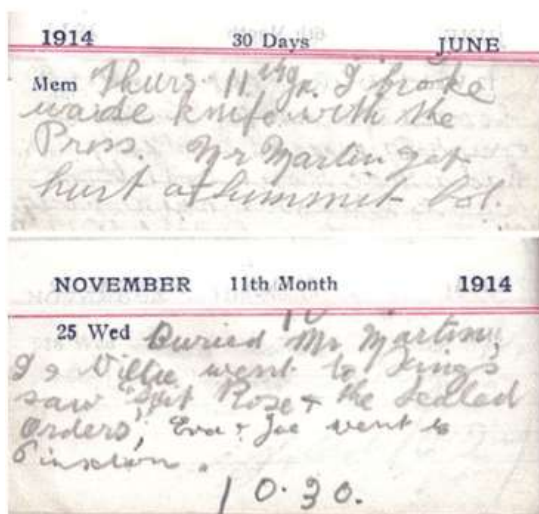 1914 30 Days JUNE
Mem Thurs 11th I broke
knife with the
Press. Mr Martin got
hurt at Summit Col.
NOVEMBER 11th Month 1914
25 Wed Buried Mr Martin,
I & Willie went to Kings
saw "Sut Rose & the Sealed
Orders", Eva & Joe went to
Pinxton.
10.30.